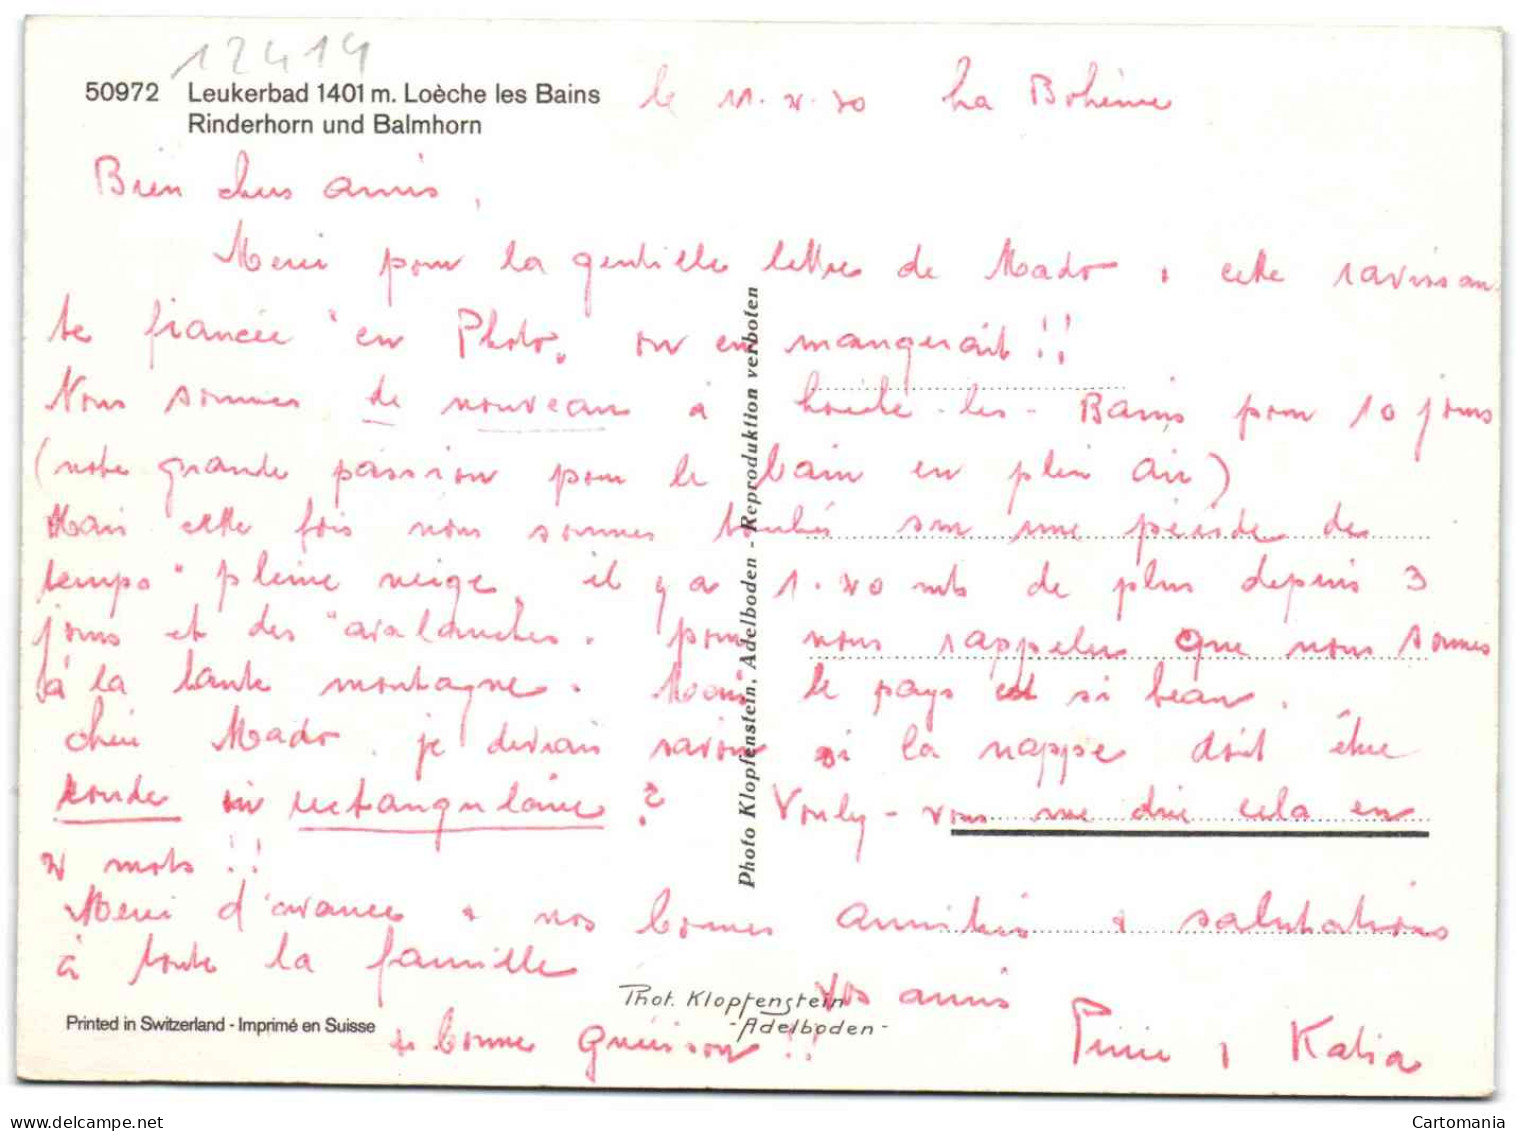 12414
50972 Leukerbad 1401 m. Loèche les Bains
Rinderhorn und Balmhorn
le 11. 2. 70 La Bohème
Bien chers amis,
Merci pour la gentille lettre de Mado, cette ravissan-
te fiancée "en Photo" on en mangerait!!
Nous sommes de nouveau à Loèche-les-Bains pour 10 jours
(notre grande passion pour le bain en plein air)
Mais cette fois nous sommes tombés sur une période de
temps "pleine neige, il y a 1.20 mts de plus depuis 3
jours et des "avalanches. pour nous rappeler que nous sommes
à la haute montagne. Mais le pays est si beau.
Chère Mado, je devrais savoir si la nappe doit être
ronde ou rectangulaire? Voulez-vous me dire cela en
2 mots!!
Merci d'avance + nos bonnes amitiés + salutations
à toute la famille
Vos amis
+ bonne guérison!!
Katia
Photo Klopfenstein, Adelboden - Reproduktion verboten
Phot. Klopfenstein
-Adelboden-
Printed in Switzerland - Imprimé en Suisse
delcampe.net
Cartomania